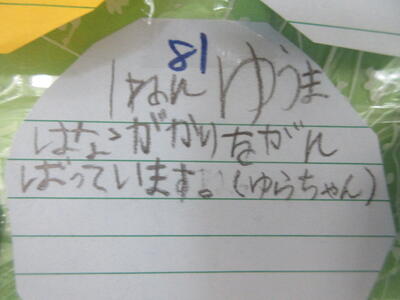 81
1ねん ゆうま
はながかりをがん
ばっています。(ゆらちゃん)